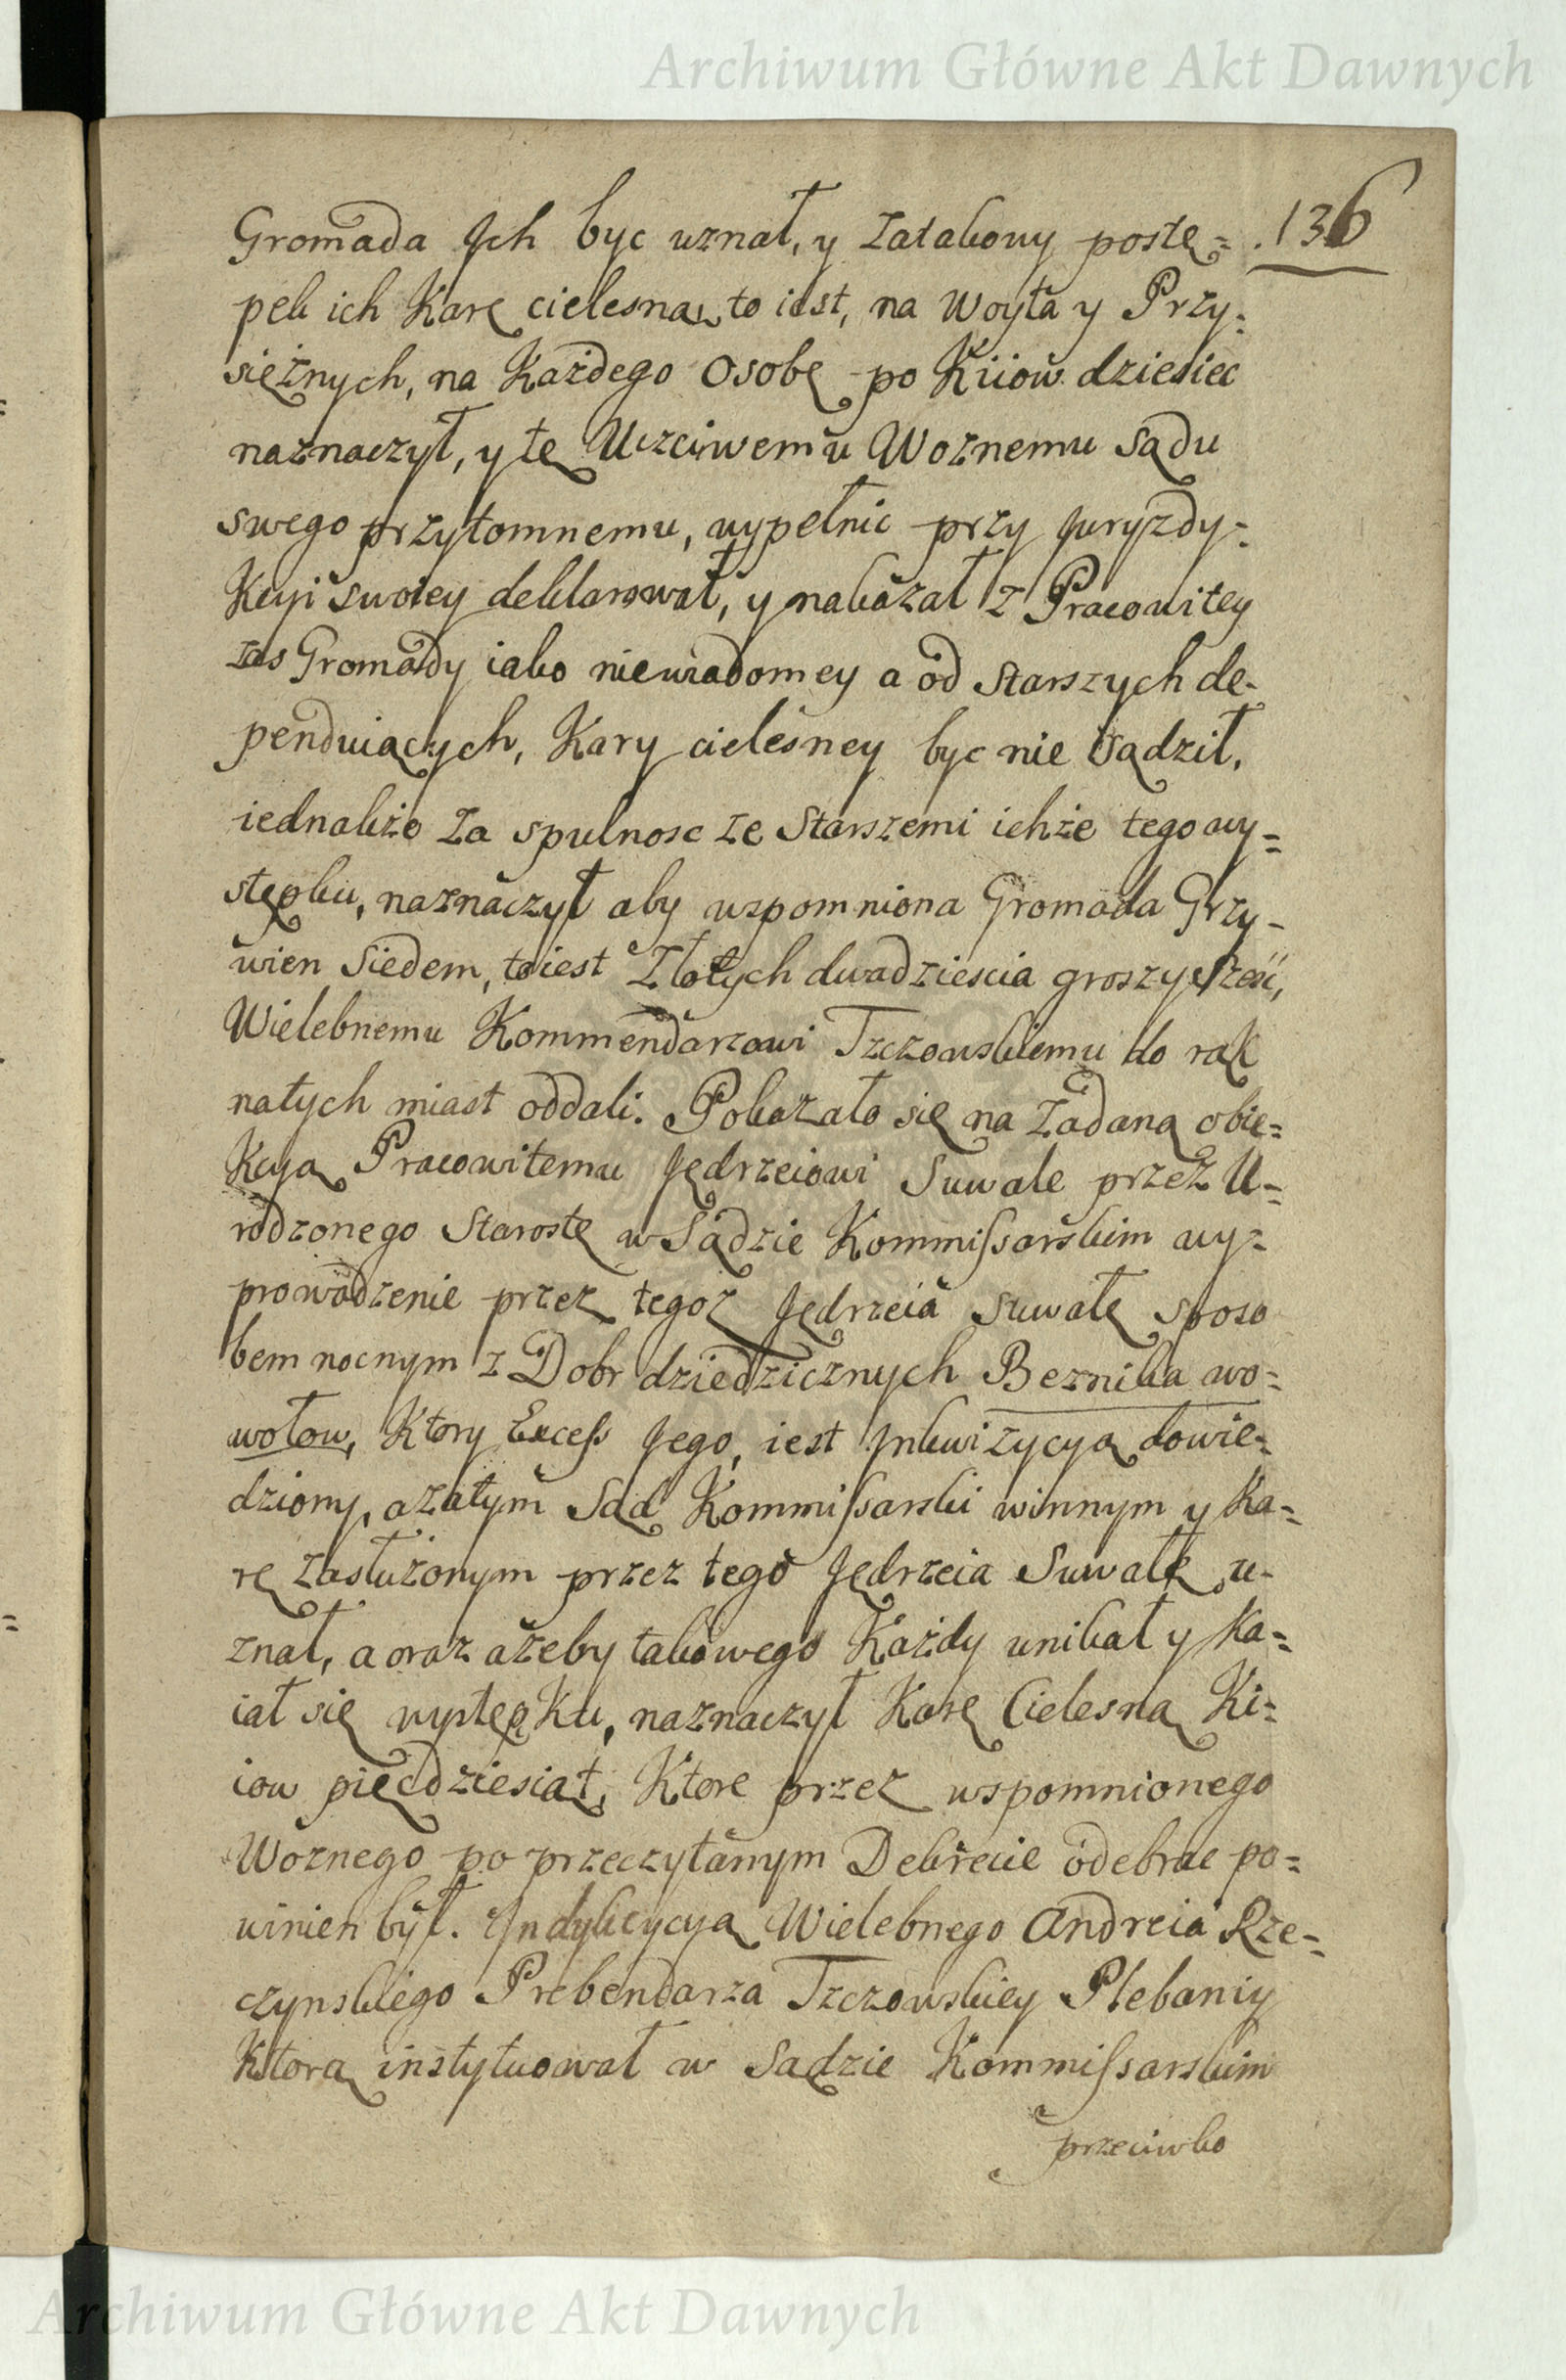 Archiwum Główne Akt Dawnych
136
Gromada Ich byc uznał, y zatakowy postę=
pek ich Karę cielesną, to iest, na Woyta y Przy=
siężnych, na Każdego Osobę po Kiiow dziesiec
naznaczył, y tę Uczciwemu Woznemu Sądu
swego przytomnemu, wypełnic przy Juryzdy=
Kcyi swoiey deklarował, y nakazał z Pracowitey
zas Gromady iako niewiadomey a od Starszych de-
penduiących, Kary cielesney byc nie sądził,
iednakże za spulnosc ze Starszemi ichże tego wy=
stępku, naznaczył aby wspomniona Gromada Grzy-
wien Siedem, to iest Złotych dwadziescia groszy sześć,
Wielebnemu Kommendarzowi Tzczowskiemu do rąk
natych miast oddali. Pokazało się na Zadaną obie=
Kcyą Pracowitemu Jędrzeiowi Suwale przez U=
rodzonego Starostę w Sądzie Kommissarskim wy=
prowadzenie przez tegoż Jędrzeia Suwałę sposo
bem nocnym z Dobr dziedzicznych Beznika wo=
wołow, Ktory Excess Jego, iest Inkwizycyą dowie=
dziony, azatym Sąd Kommissarski winnym y Ka=
rę zasłużonym przez tego Jędrzeia Suwałę u-
znał, a oraz ażeby takowego Każdy unikał y Ka=
iał się wystepKu, naznaczył Karę Cielesną Ki=
iow pięcdziesiąt, Ktore przez wspomnionego
Woznego po przeczytanym Dekrecie odebrac po=
winien był. Indykcycyą Wielebnego Andrzeia Rze=
czynskiego Prebendarza Tzczowskiey Plebaniy
Ktorą instytuował w Sądzie Kommissarskim
przeciwko
Archiwum Główne Akt Dawnych